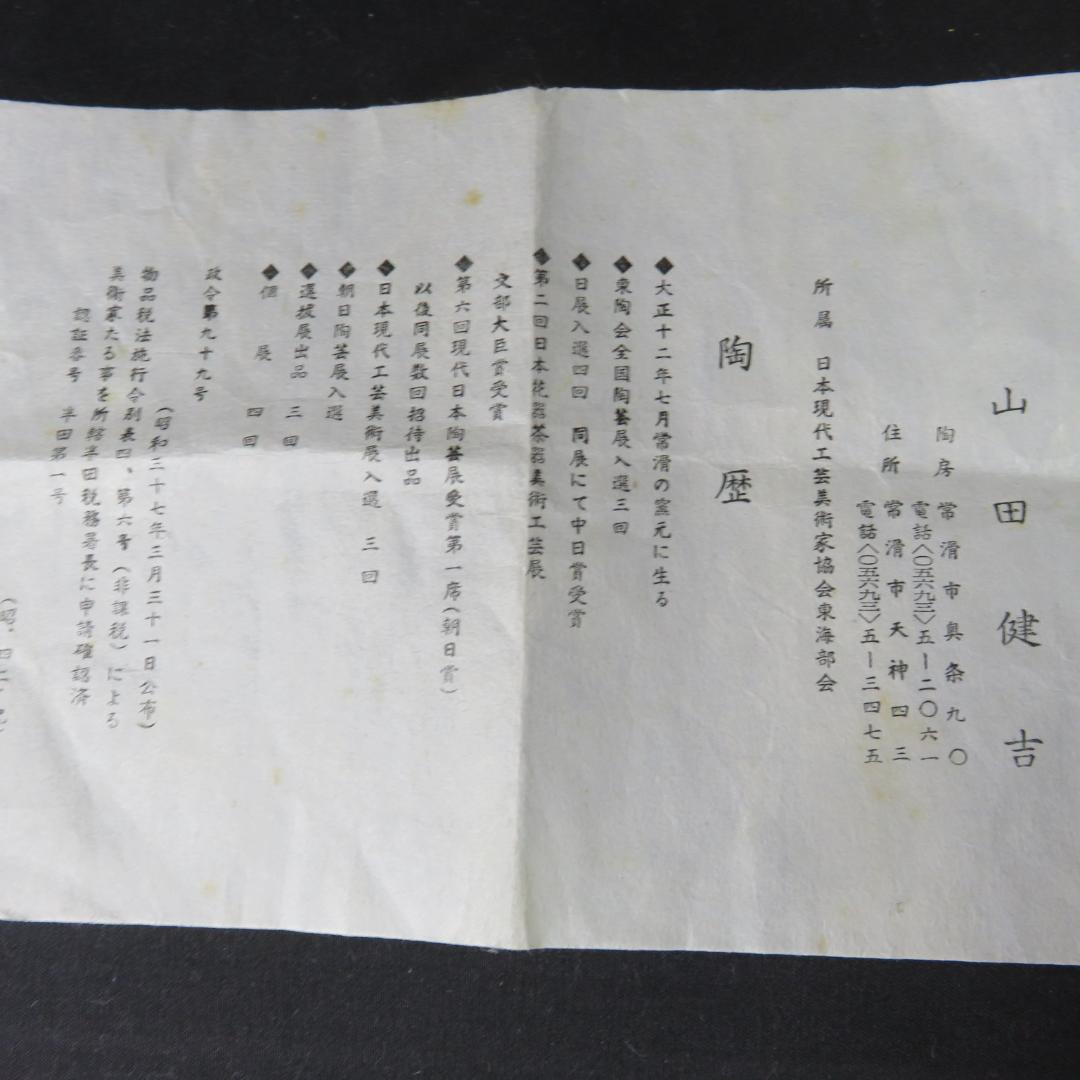 山田健吉
陶房 常滑市奥条九〇
電話〈〇五六九三〉五ー二〇六一
住所 常滑市天神四三
電話〈〇五六九三〉五ー三四七五
所属 日本現代工芸美術家協会東海部会
陶歴
◆大正十二年七月常滑の窯元に生る
◆東陶会全国陶芸展入選三回
◆日展入選四回 同展にて中日賞受賞
◆第二回日本花器茶器美術工芸展
文部大臣賞受賞
◆第六回現代日本陶芸展受賞第一席(朝日賞)
以後同展数回招待出品
◆日本現代工芸美術展入選 三回
◆朝日陶芸展入選
◆選抜展出品 三回
◆個展 四回
政令第九十九号
(昭和三十七年三月三十一日公布)
物品税法施行令別表四、第六号(非課税)による
美術家たる事を所轄半田税務署長に申請確認済
認証番号 半田第一号